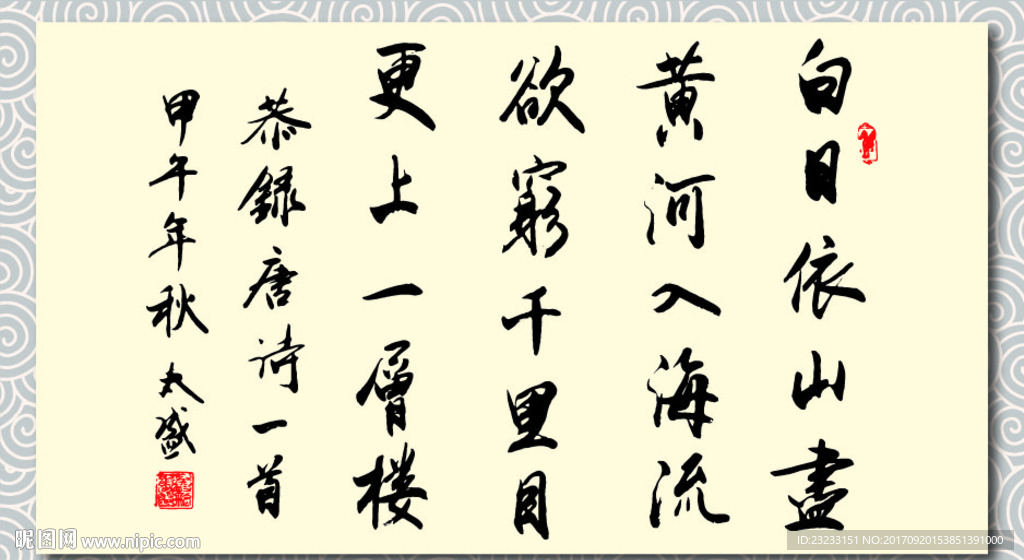 白日依山盡
黄河入海流
欲窮千里目
更上一層楼
恭録唐诗一首
甲午年秋 太盛
昵图网 www.nipic.com
ID:23233151 NO:20170920153851391000